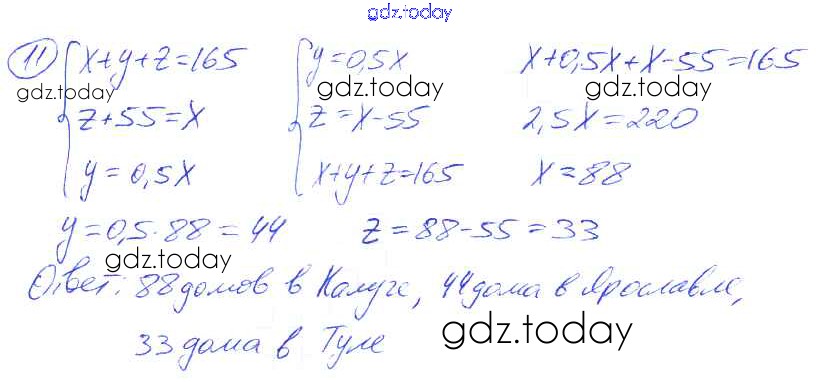 gdz.today
11 x+y+z=165 y=0,5x x+0,5x+x-55=165
gdz.today gdz.today gdz.today
z+55=x z=x-55 2,5x=220
y=0,5x x+y+z=165 x=88
y=0,5·88=44 z=88-55=33
gdz.today
Ответ: 88 домов в Калуге, 44 дома в Ярославле,
33 дома в Туле
gdz.today